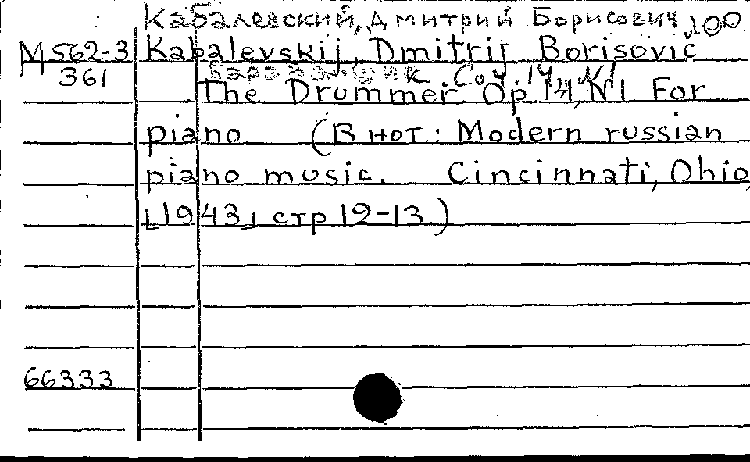 Кабалевский, Дмитрий Борисович 100
М562-3 Kabalevskij, Dmitrij Borisovič
361 Барабанщик Соч 14, №1
The Drummer Op 14, N1 For
piano (В нот: Modern russian
piano music. Cincinnati, Ohio,
[1943] стр 12-13)
66333